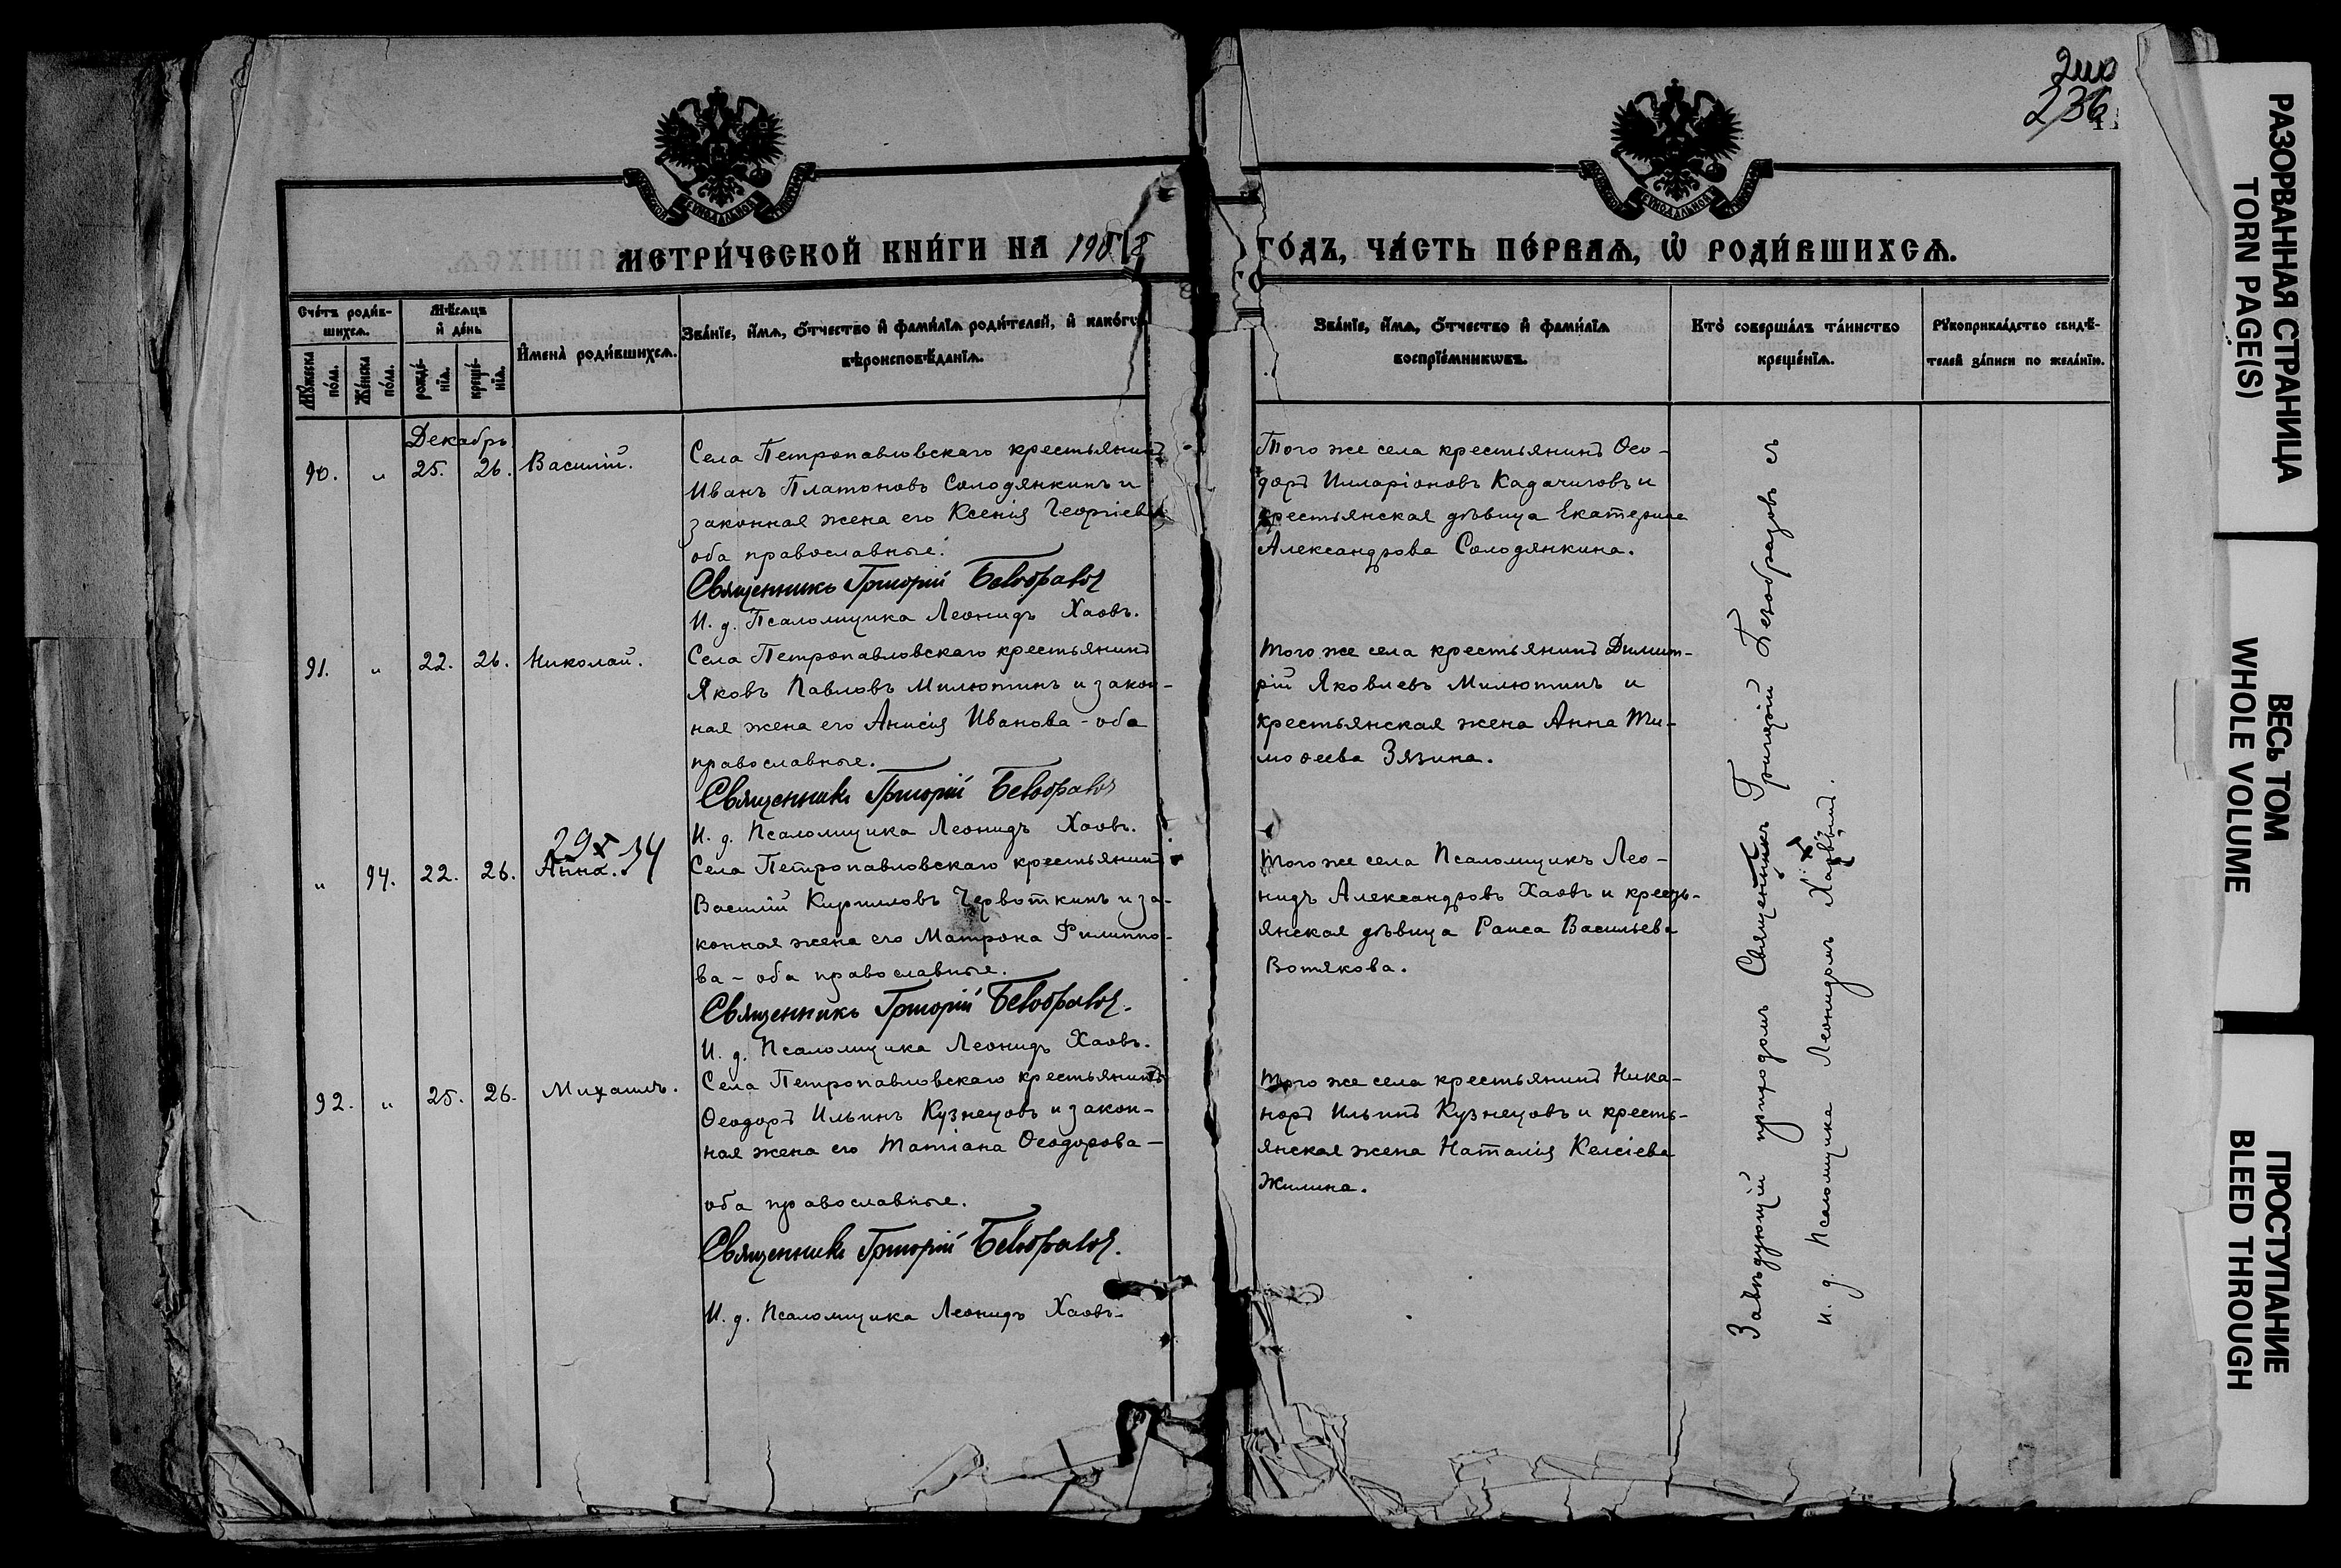 236
МЕТРИ́ЧЕСКОЙ КНИ́ГИ НА 190
ГО́ДЪ, ЧА́СТЬ ПЕ́РВАѦ, Ѡ҆ РОДИ́ВШИХСѦ.
Сче́тъ роди́в-
шихсѧ.
Мѣ́сѧцъ
и҆ де́нь
Мꙋ́жеска
по́ла.
Же́нска
по́ла.
рожде́-
нїѧ.
креще́-
нїѧ.
И҆мена̀ роди́вшихсѧ.
Зва́нїе, и҆́мѧ, ѻ҆́тчество и҆ фами́лїѧ роди́телей, и҆ како́гѡ
вѣроисповѣ́данїѧ.
Зва́нїе, и҆́мѧ, ѻ҆́тчество и҆ фами́лїѧ
воспрїе́мникѡвъ.
Кто̀ соверша́лъ та́инство
креще́нїѧ.
Рꙋкоприкла́дство свидѣ́-
телей за́писи по жела́нїю.
Декабрь
90. " 25. 26. Василій.
Села Петропавловскаго крестьянинъ
Иванъ Платоновъ Солодянкинъ и
законная жена его Ксенія Георгіева
оба православные.
Священникъ Григорій Безобразовъ
И. д. Псаломщика Леонидъ Хаовъ.
Того же села крестьянинъ Ѳео-
доръ Илларіоновъ Кадачиговъ и
крестьянская дѣвица Екатерина
Александрова Солодянкина.
91. " 22. 26. Николай.
Села Петропавловскаго крестьянинъ
Яковъ Павловъ Милютинъ и закон-
ная жена его Анисія Иванова - оба
православные.
Священникъ Григорій Безобразовъ
И. д. Псаломщика Леонидъ Хаовъ.
Того же села крестьянинъ Димит-
рій Яковлевъ Милютинъ и
крестьянская жена Анна Ти-
моѳеева Зязина.
29 х 34
" 94. 22. 26. Анна.
Села Петропавловскаго крестьянинъ
Василій Кирилловъ Червоткинъ и за-
конная жена его Матрона Филиппо-
ва - оба православные.
Священникъ Григорій Безобразовъ.
И. д. Псаломщика Леонидъ Хаовъ.
Того же села Псаломщикъ Лео-
нидъ Александровъ Хаовъ и кресть-
янская дѣвица Раиса Васильева
Вотякова.
92. " 25. 26. Михаилъ.
Села Петропавловскаго крестьянинъ
Ѳеодоръ Ильинъ Кузнецовъ и закон-
ная жена его Татіана Ѳеодорова -
оба православные.
Священникъ Григорій Безобразовъ.
И. д. Псаломщика Леонидъ Хаовъ.
Того же села крестьянинъ Ника-
норъ Ильинъ Кузнецовъ и кресть-
янская жена Наталія Келсіева
Жилина.
Завѣдующій приходомъ Священникъ Григорій Безобразовъ съ
и. д. Псаломщика Леонидомъ
РАЗОРВАННАЯ СТРАНИЦА
TORN PAGE(S)
ВЕСЬ ТОМ
WHOLE VOLUME
ПРОСТУПАНИЕ
BLEED THROUGH